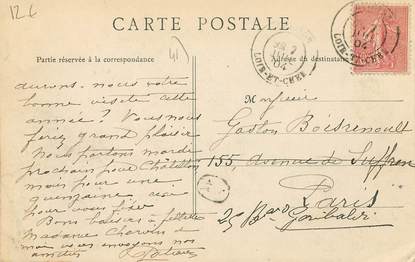 12 €
41
CARTE POSTALE
Partie réservée à la correspondance
Adresse du destinataire
LOIR-ET-CHER
04
LOIR-ET-CHER
04
aurons-nous votre
bonne visite cette
année? Vous nous
ferez grand plaisir
Nous partons mardi
prochain pour Châtillon
mais pour une
quinzaine
pour vous fixer
Bons baisers à fillette
Madame et
moi vous envoyons nos
amitiés
Monsieur
Gaston Boisrenoult
155, avenue de Suffren
Paris
25 Bard Garibaldi